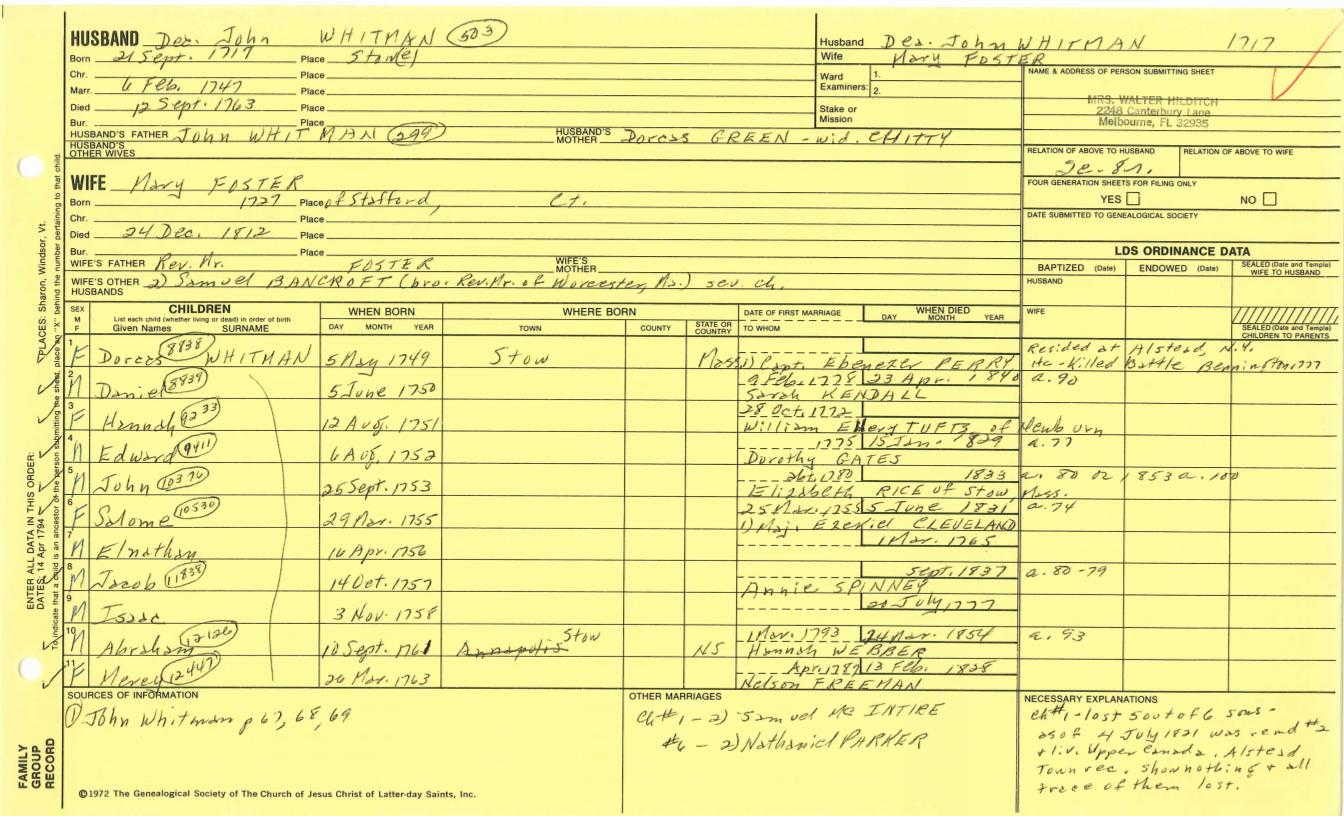 HUSBAND Dea. John WHITMAN 503
Born 21 Sept. 1717 Place Stow(e)
Chr. Place
Marr. 6 Feb. 1747 Place
Died 12 Sept. 1763 Place
Bur. Place
HUSBAND'S FATHER John WHITMAN 299 HUSBAND'S MOTHER Dorcas GREEN - wid. CHITTY
HUSBAND'S OTHER WIVES
WIFE Mary FOSTER
Born 1727 Place of Stafford, Ct.
Chr. Place
Died 24 Dec. 1812 Place
Bur. Place
WIFE'S FATHER Rev. Mr. FOSTER WIFE'S MOTHER
WIFE'S OTHER HUSBANDS 2) Samuel BANCROFT (bro. Rev. Mr. of Worcester, Ms.) sev. ch.
Husband Dea. John WHITMAN 1717
Wife Mary FOSTER
Ward Examiners: 1.
2.
Stake or Mission
NAME & ADDRESS OF PERSON SUBMITTING SHEET
MRS. WALTER HILDITCH
2248 Canterbury Lane
Melbourne, FL 32935
RELATION OF ABOVE TO HUSBAND RELATION OF ABOVE TO WIFE
FOUR GENERATION SHEETS FOR FILING ONLY
YES NO
DATE SUBMITTED TO GENEALOGICAL SOCIETY
LDS ORDINANCE DATA
BAPTIZED (Date) ENDOWED (Date) SEALED (Date and Temple) WIFE TO HUSBAND
HUSBAND
WIFE
SEALED (Date and Temple) CHILDREN TO PARENTS
SEX M F
CHILDREN
List each child (whether living or dead) in order of birth
Given Names SURNAME
WHEN BORN DAY MONTH YEAR
WHERE BORN TOWN COUNTY STATE OR COUNTRY
DATE OF FIRST MARRIAGE TO WHOM
WHEN DIED DAY MONTH YEAR
1 F Dorcas 8838 WHITMAN 5 May 1749 Stow Mass 1) Capt. Ebenezer PERRY Resided at Alstead, N.Y.
He-Killed Battle Bennington 1777
2 M Daniel 8839 5 June 1750 9 Feb. 1778 23 Apr. 1840 a. 90
Sarah KENDALL
3 F Hannah 9233 12 Aug. 1751 28 Oct. 1772
William Emery TUFTS of Newburn
4 M Edward 9411 6 Aug. 1752 1775 15 Jan. 1829 a. 77
Dorothy GATES
5 M John 10376 25 Sept. 1753 1780 1833 a. 80 or 1853 a. 100
Elizabeth RICE of Stow, Mass.
6 F Salome 10530 29 Mar. 1755 25 Mar. 1755 5 June 1831 a. 74
1) Maj. Ezekiel CLEVELAND
7 M Elnathan 16 Apr. 1756 1 Mar. 1765
8 M Jacob 11838 14 Oct. 1757 Sept. 1837 a. 80-79
Annie SPINNEY
9 M Isaac 3 Nov. 1758 20 July 1777
10 M Abraham 12126 10 Sept. 1761 Annapolis Stow NS 1 Mar. 1793 24 Mar. 1854 a. 93
Hannah WEBBER
11 F Mercy 12447 26 Mar. 1763 Apr. 1787 13 Feb. 1828
Nelson FREEMAN
SOURCES OF INFORMATION
① John Whitman p 67, 68, 69
OTHER MARRIAGES
Ch #1 - 2) Samuel Mc INTIRE
#6 - 2) Nathaniel PARKER
NECESSARY EXPLANATIONS
Ch #1 - lost 5 out of 6 sons -
as of 4 July 1821 was remd #2
+ liv. Upper Canada. Alstead
Town rec. show nothing + all
trace of them lost.
©1972 The Genealogical Society of The Church of Jesus Christ of Latter-day Saints, Inc.
FAMILY GROUP RECORD
ENTER ALL DATA IN THIS ORDER:
DATES: 14 Apr 1794 PLACES: Sharon, Windsor, Vt.
To indicate that a child is an ancestor of the person submitting the sheet, place an "X" behind the number pertaining to that child.